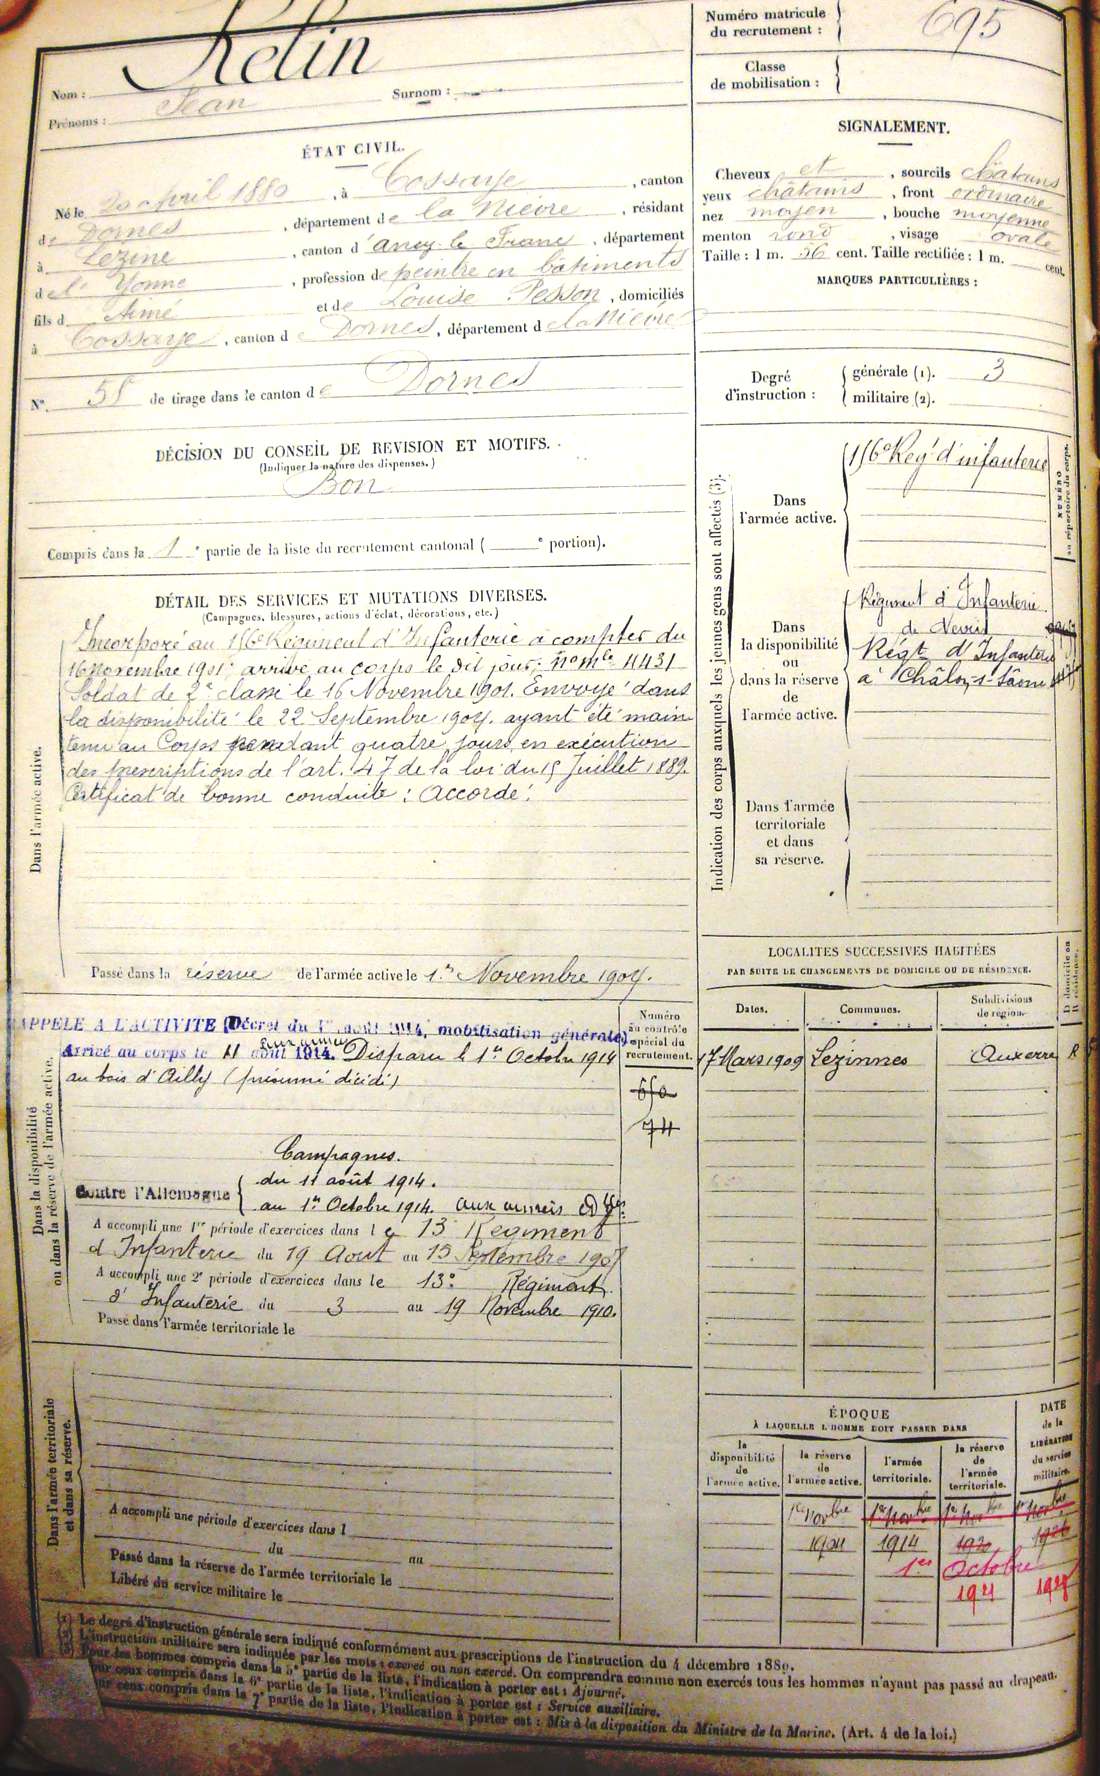 Nom : Relin
Prénoms : Jean Surnom :
Numéro matricule
du recrutement : 695
Classe
de mobilisation :
ÉTAT CIVIL.
Né le 20 avril 1880, à Cossaye, canton
de Dornes, département de la Nièvre, résidant
à Lezine, canton d'ancy-le-Franc, département
de l'Yonne, profession de peintre en bâtiments
fils d Aimé et de Louise Pesson, domiciliés
à Cossaye, canton de Dornes, département de la Nièvre
N° 58 de tirage dans le canton de Dornes
SIGNALEMENT.
Cheveux et, sourcils châtains
yeux châtains, front ordinaire
nez moyen, bouche moyenne
menton rond, visage ovale
Taille : 1 m. 56 cent. Taille rectifiée : 1 m. cent.
MARQUES PARTICULIÈRES :
Degré
d'instruction :
générale (1). 3
militaire (2).
DÉCISION DU CONSEIL DE REVISION ET MOTIFS.
(Indiquer la nature des dispenses.)
Bon
Compris dans la 1e partie de la liste du recrutement cantonal ( e portion).
DÉTAIL DES SERVICES ET MUTATIONS DIVERSES.
(Campagnes, blessures, actions d'éclat, décorations, etc.)
Dans l'armée active.
Incorporé au 156e Régiment d'Infanterie à compter du
16 novembre 1901, arrivé au corps le dit jour; no mle 4431
Soldat de 2e classe le 16 Novembre 1901. Envoyé dans
la disponibilité le 22 Septembre 1904. ayant été main
tenu au Corps pendant quatre jours en exécution
des prescriptions de l'art. 47 de la loi du 15 Juillet 1889.
Certificat de bonne conduite : Accordé.
Passé dans la réserve de l'armée active le 1er Novembre 1904.
Indication des corps auxquels les jeunes gens sont affectés (3).
NUMÉRO
au répertoire du corps.
Dans
l'armée active.
156e Régt d'infanterie
Dans
la disponibilité
ou
dans la réserve
de
l'armée active.
Régiment d'Infanterie
de Nevers
Régt d'Infanterie
à Châlon s/ Saône
Dans l'armée
territoriale
et dans
sa réserve.
LOCALITES SUCCESSIVES HABITÉES
PAR SUITE DE CHANGEMENTS DE DOMICILE OU DE RÉSIDENCE.
Dates. Communes. Subdivisions
de région.
D domicile ou
R résidence.
17 Mars 1909 Lezinnes Auxerre R
Dans la disponibilité
ou dans la réserve de l'armée active.
RAPPELÉ A L'ACTIVITÉ (Décret du 1er août 1914, mobilisation générale)
Arrivé au corps le 11 août 1914. Disparu le 1er Octobre 1914
au bois d'Ailly (présumé décédé)
Numéro
au contrôle
spécial du
recrutement.
650
74
Campagnes.
Contre l'Allemagne
du 11 août 1914.
au 1er Octobre 1914. aux armées
A accompli une 1re période d'exercices dans le 13 Régiment
d'Infanterie du 19 Août au 15 Septembre 1907
A accompli une 2e période d'exercices dans le 13e Régiment
d'Infanterie du 3 au 19 Novembre 1910.
Passé dans l'armée territoriale le
Dans l'armée territoriale
et dans sa réserve.
A accompli une période d'exercices dans l
du au
Passé dans la réserve de l'armée territoriale le
Libéré du service militaire le
ÉPOQUE
À LAQUELLE L'HOMME DOIT PASSER DANS
DATE
de la
LIBÉRATION
du service
militaire.
la
disponibilité
de
l'armée active.
la réserve
de
l'armée active.
l'armée
territoriale.
la réserve
de
l'armée
territoriale.
1er Novbre 1er Novbre 1er Novbre 1er Novbre
1904 1914 1920 1926
1er Octobre
1921 1928
(1) Le degré d'instruction générale sera indiqué conformément aux prescriptions de l'instruction du 4 décembre 1889.
(2) L'instruction militaire sera indiquée par les mots : exercé ou non exercé. On comprendra comme non exercés tous les hommes n'ayant pas passé au drapeau.
(3) Pour les hommes compris dans la 5e partie de la liste, l'indication à porter est : Ajourné.
Pour ceux compris dans la 6e partie de la liste, l'indication à porter est : Service auxiliaire.
Pour ceux compris dans la 7e partie de la liste, l'indication à porter est : Mis à la disposition du Ministre de la Marine. (Art. 4 de la loi.)